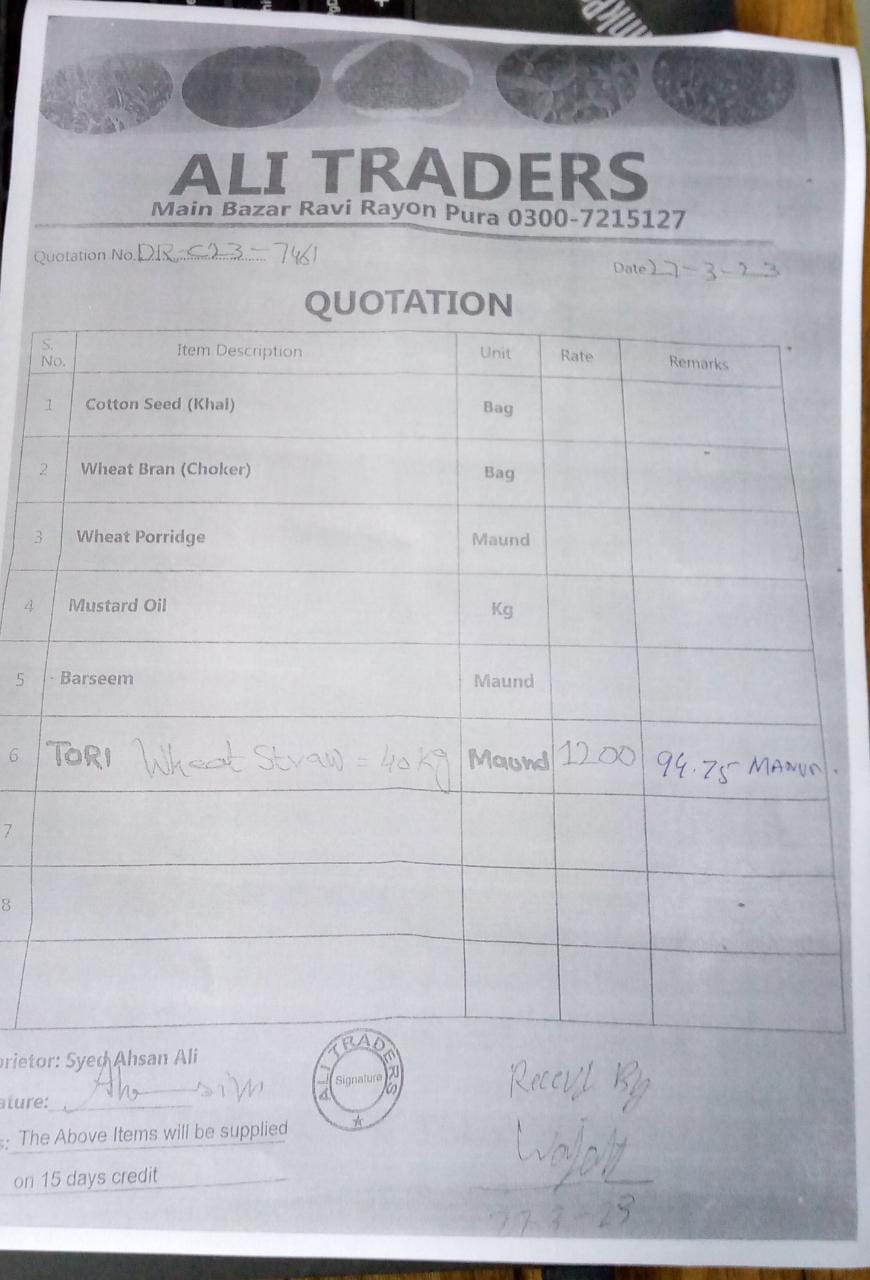 ALI TRADERS
Main Bazar Ravi Rayon Pura 0300-7215127
Quotation No. DR-C23-7461
Date 27-3-23
QUOTATION
S. No. Item Description Unit Rate Remarks
1 Cotton Seed (Khal) Bag
2 Wheat Bran (Choker) Bag
3 Wheat Porridge Maund
4 Mustard Oil Kg
5 Barseem Maund
6 TORI Wheat Straw = 40 kg Maund 1200 94.75
7
8
prietor: Syed Ahsan Ali
ature:
ALI TRADERS
Signature
s: The Above Items will be supplied
on 15 days credit
By